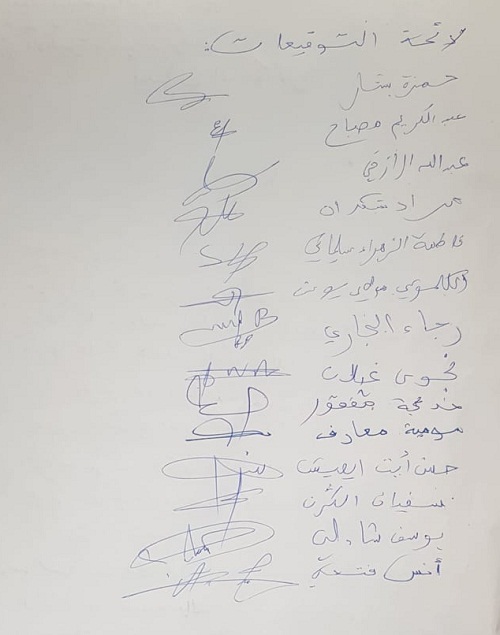 لائحة التوقيعات:
حمزة بشار
عبد الكريم مصباح
عبد الله الرازقي
مراد شكران
فاطمة الزهراء سليماني
مولاي يوسف
رجاء البخاري
نجوى غيلان
خديجة شقور
سومية معارف
حسن أيت ايعيش
سفيان الكرن
يوسف شادلي
أنس فتحي